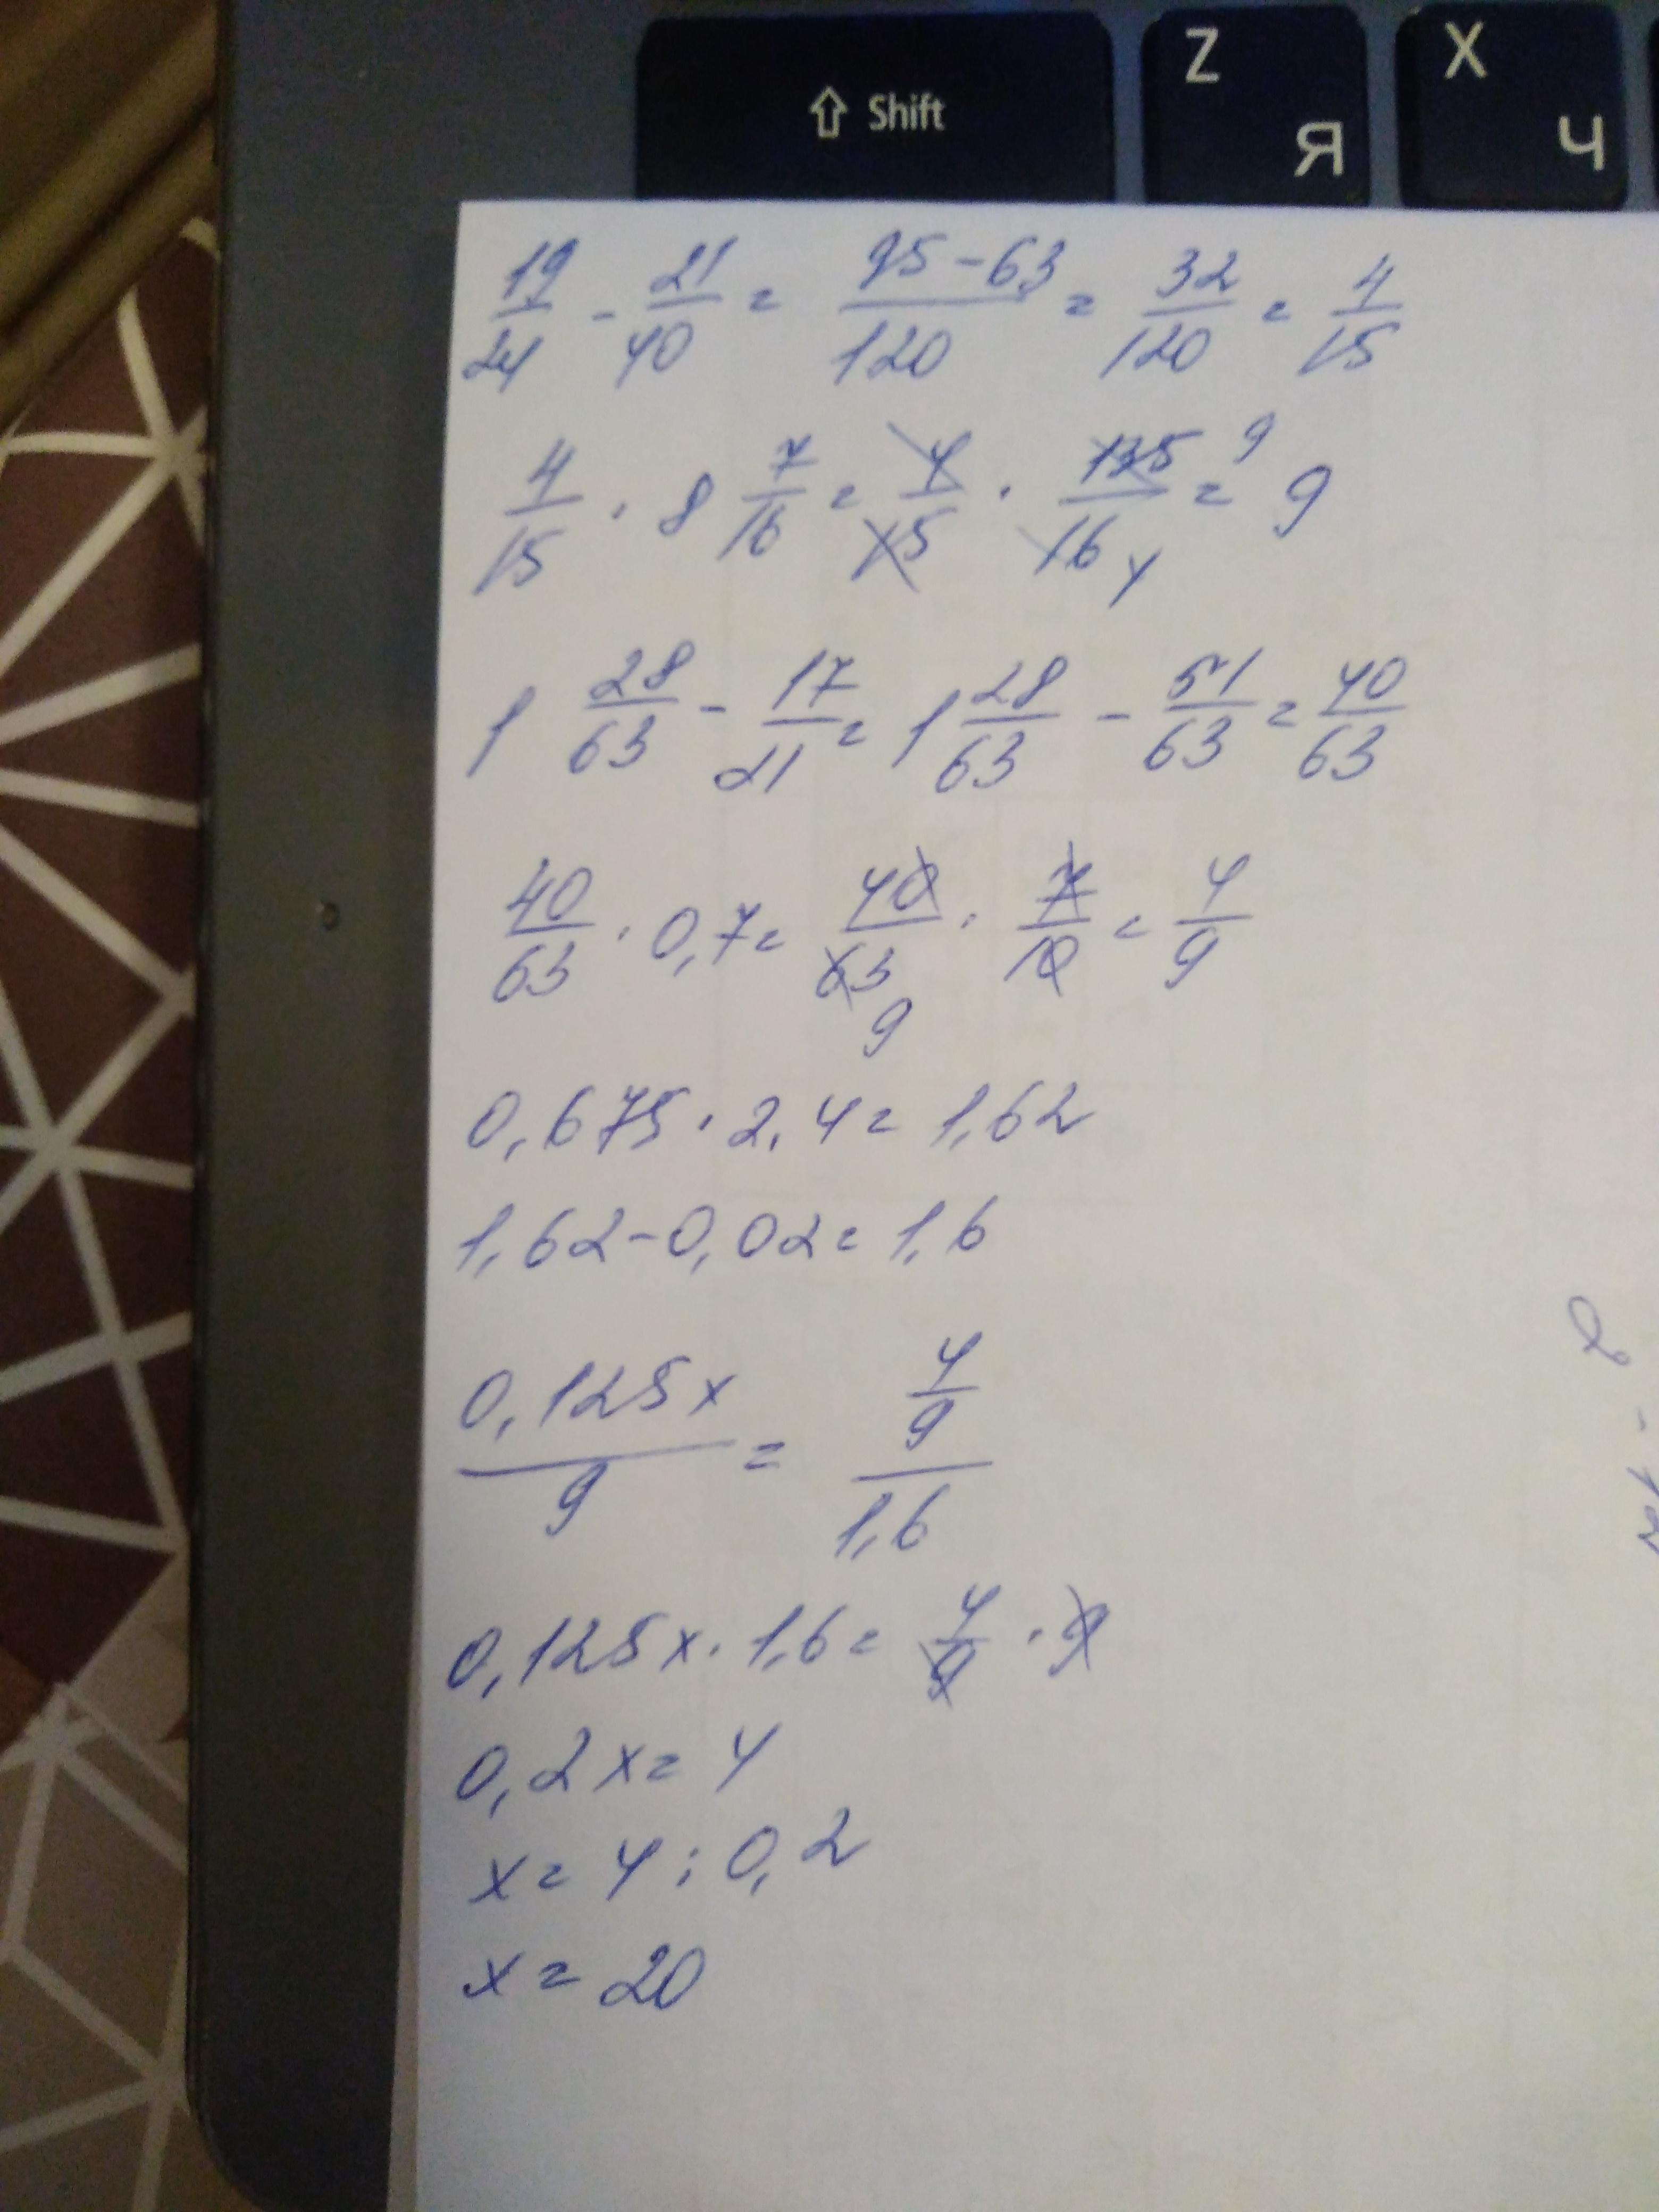 ⇧ Shift Z Я X Ч
19/24 - 21/40 = 95-63/120 = 32/120 = 4/15
4/15 · 8 7/16 = 4/15 · 135/16 4 = 9 9
1 28/63 - 17/21 = 1 28/63 - 51/63 = 40/63
40/63 · 0,7 = 40/63 9 · 7/10 = 4/9
0,675 · 2,4 = 1,62
1,62 - 0,02 = 1,6
0,125x/9 = 4/9/1,6
0,125x · 1,6 = 4/9 · 9
0,2x = 4
x = 4 : 0,2
x = 20